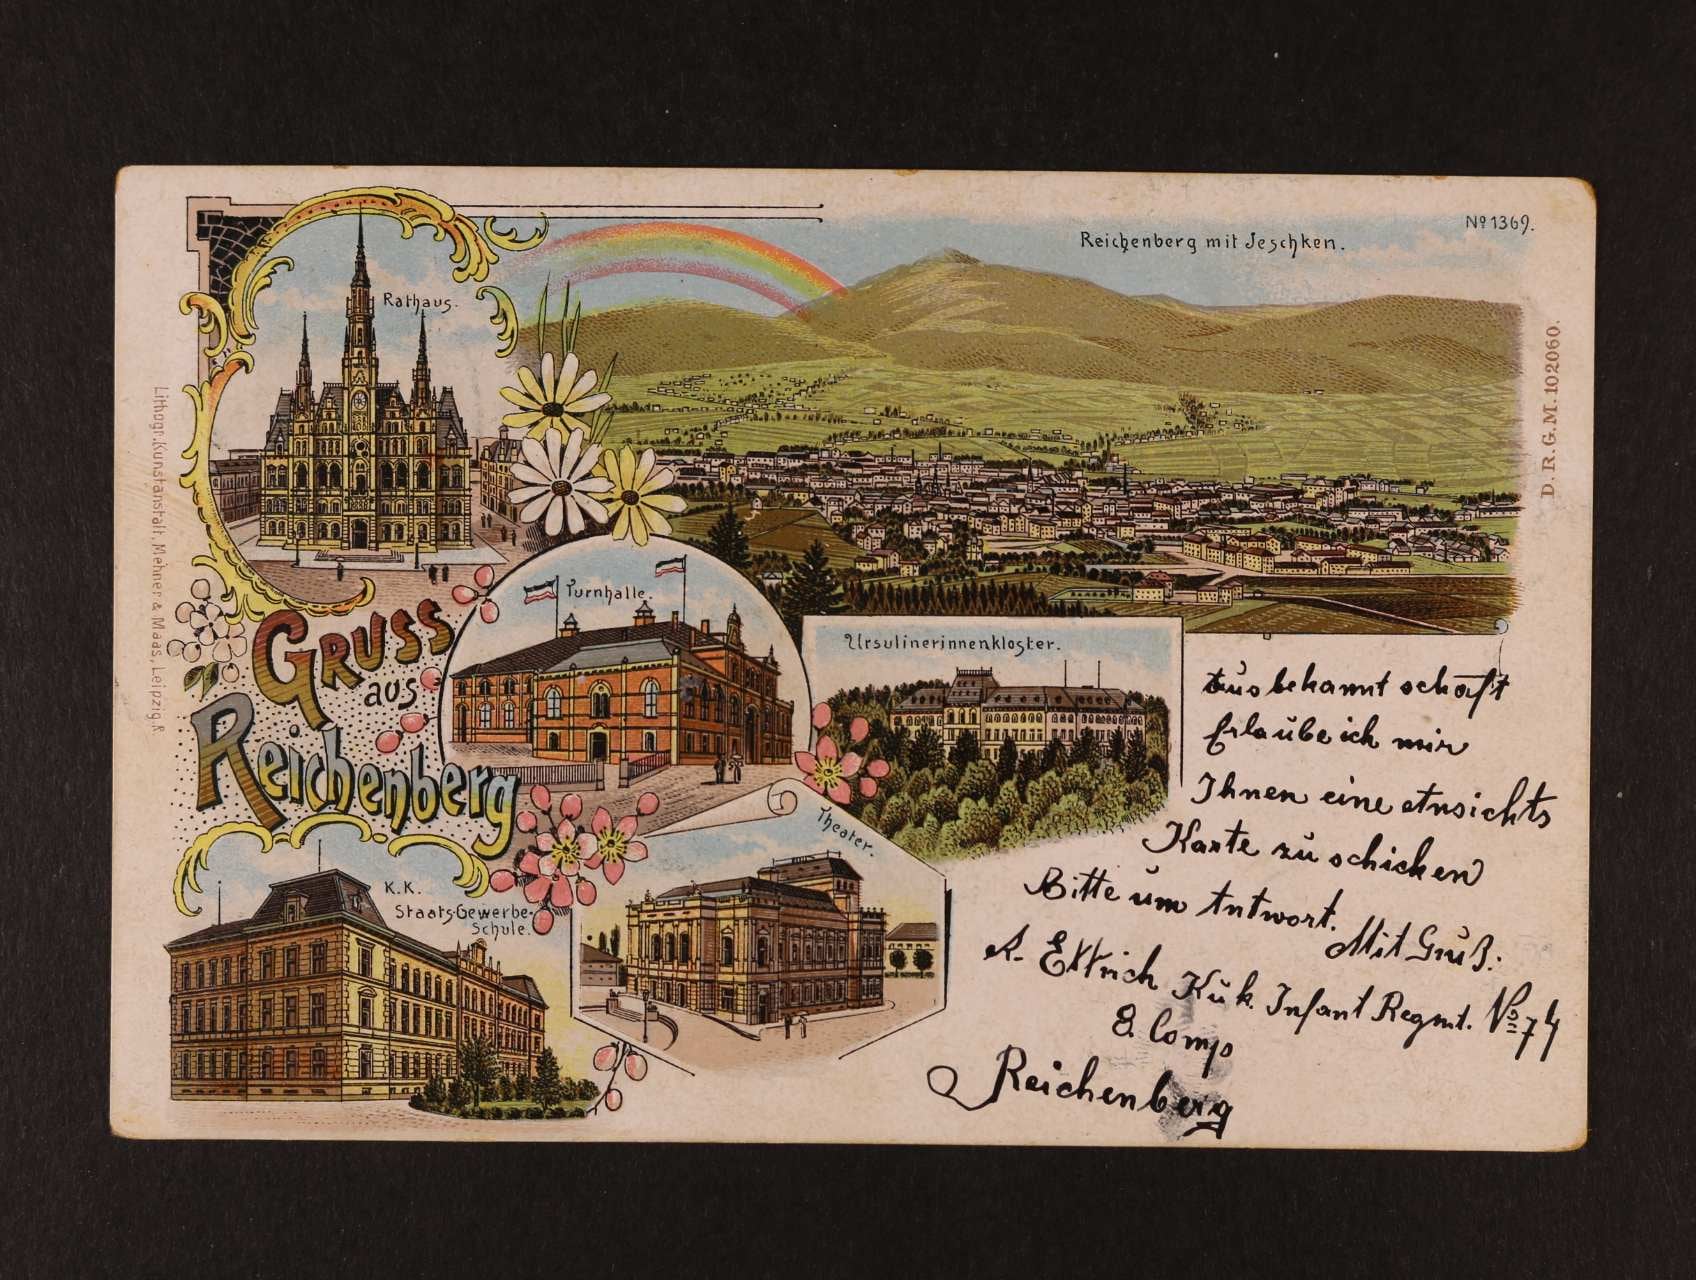 Nº 1369.
Reichenberg mit Jeschken.
Rathaus.
D. R. G. M. 102060.
Lithogr. Kunstanstalt, Mehner & Maas, Leipzig. R
Turnhalle.
GRUSS
aus
Reichenberg
Ursulinerinnenkloster.
Theater.
K.K.
Staats-Gewerbe-
Schule.
Aus bekannt schaft
Erlaube ich mir
Ihnen eine Ansichts
Karte zu schicken
Bitte um Antwort.
Mit Gruß.
A. Ettrich Kuk. Infant Regmt. Nº 74
8. Comp
Reichenberg